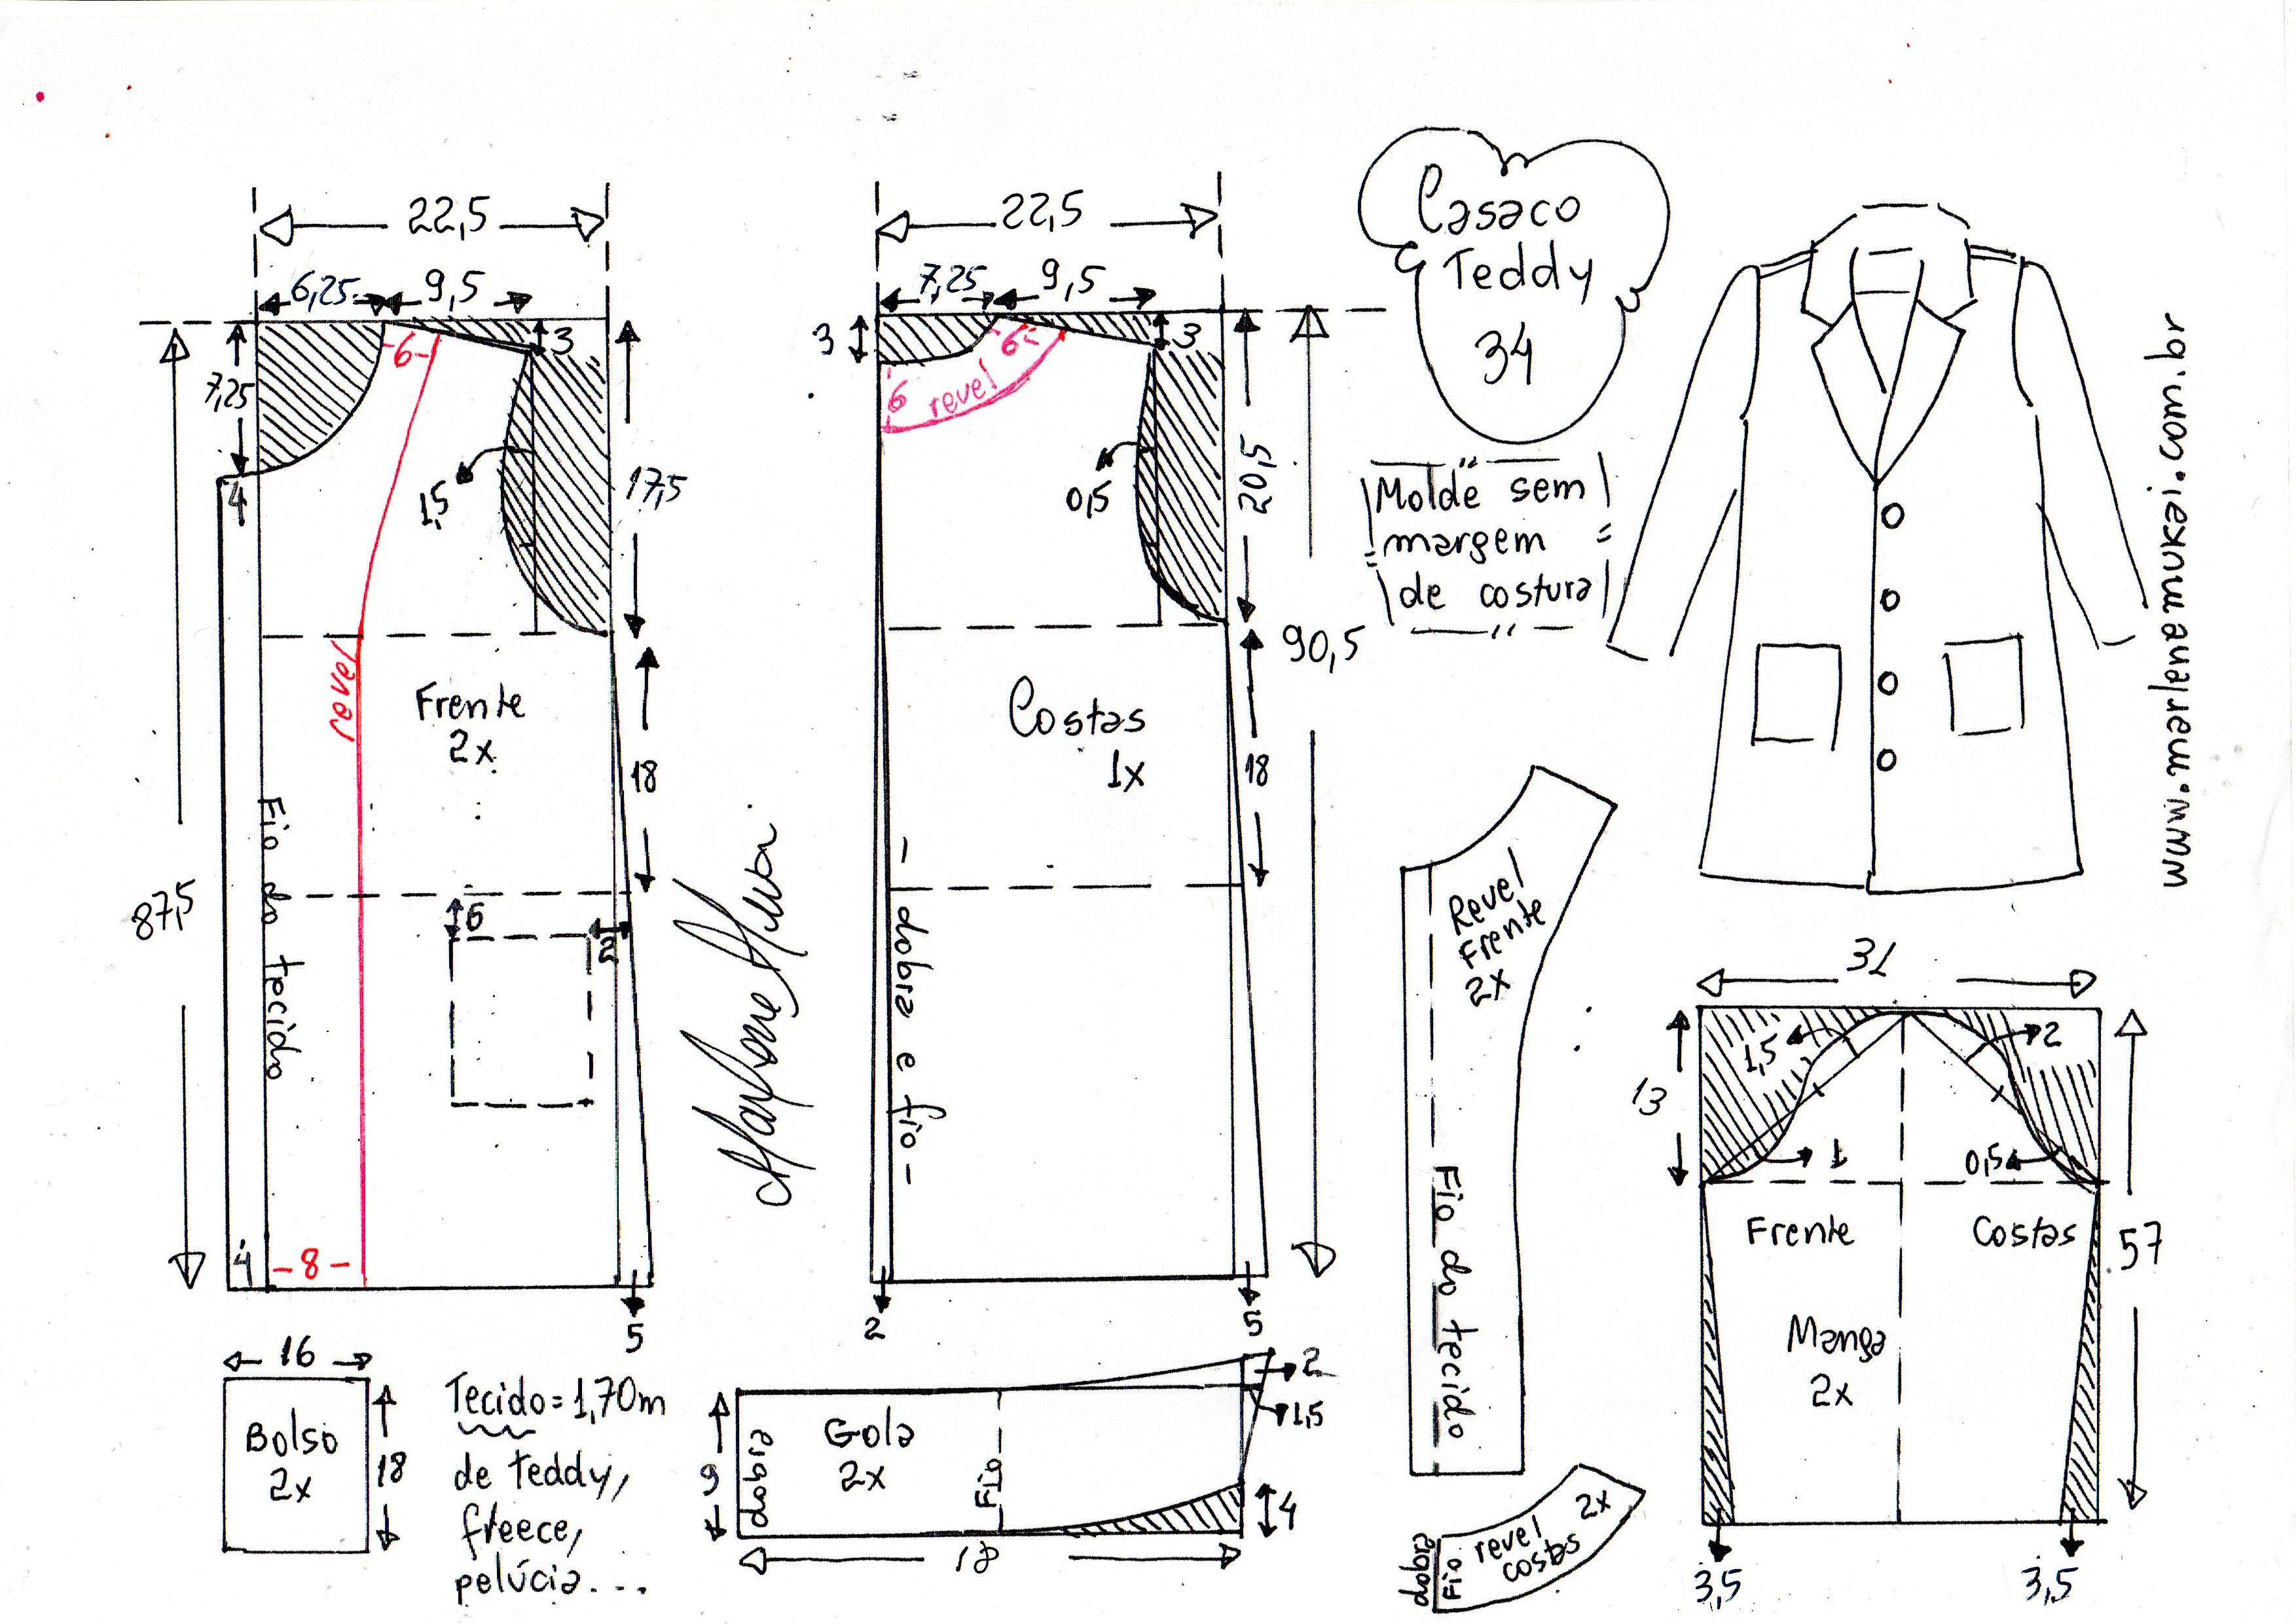 22,5
6,25
9,5
3
7,25
-6-
4
1,5
17,5
revel
Frente
2x
18
Fio do tecido
87,5
6
2
4
-8-
5
22,5
7,25
9,5
3
3
6
-6-
revel
0,5
20,5
90,5
Costas
1x
18
- dobra e fio -
2
5
Casaco
Teddy
34
Molde sem
margem
de costura
www.marlenemukai.com.br
Marlene Mukai
Revel
Frente
2x
Fio do tecido
31
13
1,5
2
1
0,5
Frente
Costas
57
Manga
2x
3,5
3,5
16
Bolso
2x
18
Tecido = 1,70m
de teddy,
freece,
pelúcia...
9
dobra
Gola
2x
Fio
2
1,5
4
18
dobra
Fio
revel
costas
2x